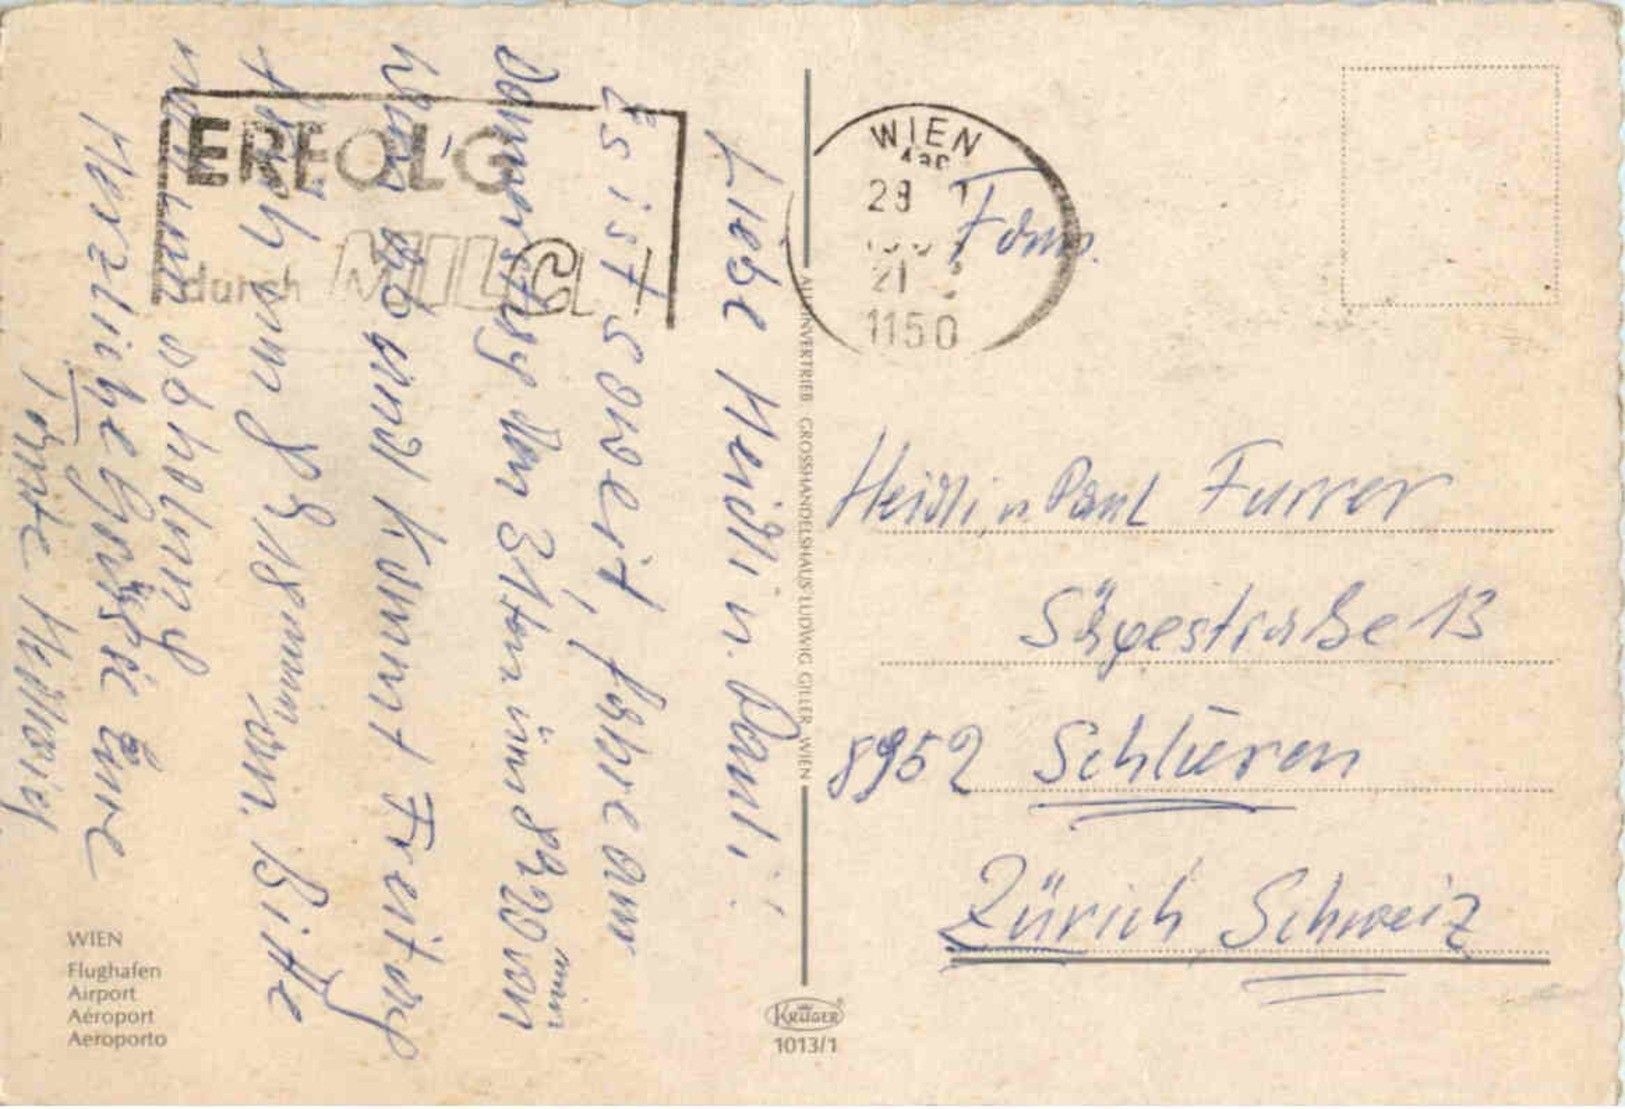 Liebe Heidli u. Paul!
Es ist soweit, fahre am
Donnerstag den 31ten um 8h 20 von
min
hier ab und kommt Freitag
früh um 8h 18 an. Bitte
min
um Abholung
Herzliche Grüße Eure
Tante Hedwig
ERFOLG
durch MIL
WIEN
28
21
1150
Fam.
Heidli u Paul Furrer
Sägestraße 13
8952 Schlieren
Zürich Schweiz
ALLEINVERTRIEB GROSSHANDELSHAUS LUDWIG GILLER, WIEN
WIEN
Flughafen
Airport
Aéroport
Aeroporto
KRÜGER
1013/1